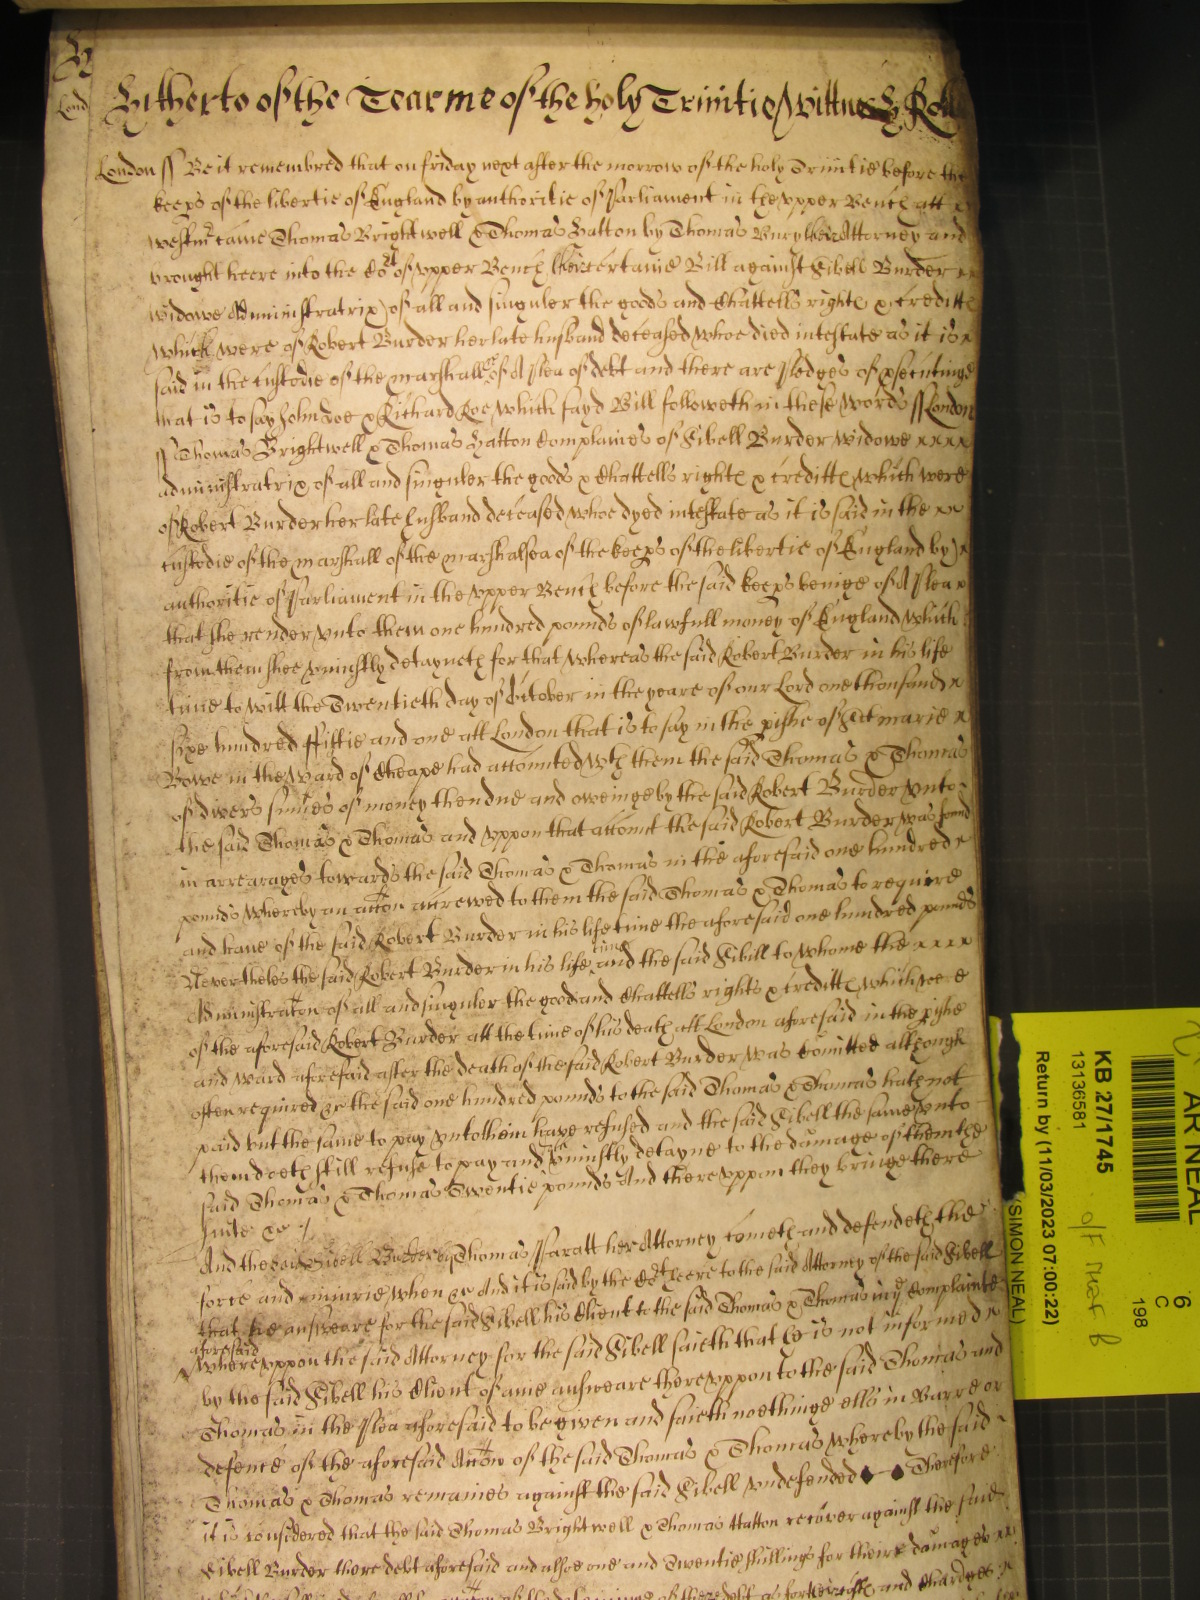 Hitherto of the Tearme of the holy Trinitie Wittnes H Rolle
Lond
London ss Be it remembred that on friday next after the morrow of the holy Trinitie before the
keeps of the libertie of England by authoritie of Parliament in the upper Bench att
Westmr came Thomas Brightwell & Thomas Hatton by Thomas Bury their Attorney and
brought heere into the Cort of upper Bench their certaine Bill against Sibell Burder
widowe Administratrix of all and singuler the goods and Chattells rights & creditts
which were of Robert Burder her late husband deceased whoe died intestate as it is
said in the custodie of the marshall &c of A Plea of debt and there are Pledges of psecutinge
that is to say John Doe & Richard Roe which sayd Bill followeth in these words ss London
ss Thomas Brightwell & Thomas Hatton Complaines of Sibell Burder widowe
administratrix of all and singuler the goods & Chattells rights & creditts which were
of Robert Burder her late husband deceased whoe dyed intestate as it is said in the
custodie of the marshall of the marshalsea of the keeps of the libertie of England by
authoritie of Parliament in the upper Bench before the said keeps beinge of A Plea
that she render unto them one hundred pounds of lawfull money of England which
from them shee uniustly detayneth for that whereas the said Robert Burder in his life
time to witt the Twentieth day of October in the yeare of our Lord one thousand
sixe hundred fiftie and one att London that is to say in the pishe of Sct marie
Bowe in the Ward of Cheape had accounted wth them the said Thomas & Thomas
of divers summes of money then due and oweinge by the said Robert Burder unto
the said Thomas & Thomas and uppon that account the said Robert Burder was found
in arrearages towards the said Thomas & Thomas in the aforesaid one hundred
pounds whereby an accon accrewed to them the said Thomas & Thomas to require
and have of the said Robert Burder in his life time the aforesaid one hundred pounds
Nevertheles the said Robert Burder in his life time and the said Sibill to whome the
Administracon of all and singuler the goods and Chattells rights & creditts which were
of the aforesaid Robert Burder att the time of his death att London aforesaid in the pishe
and ward aforesaid after the death of the said Robert Burder was comitted although
often required &c the said one hundred pounds to the said Thomas & Thomas hath not
paid but the same to pay unto them have refused and the said Sibell the same unto
them doeth still refuse to pay and uniustly detayne to the damage of them the
said Thomas & Thomas Twentie pounds And thereuppon they bringe there
suite &c
And the said Sibell Burder by Thomas Paratt her Attorney cometh and defendeth the
force and iniurie when &c And it is said by the Cort heere to the said Attorney of the said Sibell
that he answeare for the said Sibell his Client to the said Thomas & Thomas in ye Complainte
aforesaid
Whereuppon the said Attorney for the said Sibell saieth that he is not informed
by the said Sibell his Client of anie answeare thereuppon to the said Thomas and
Thomas in the Plea aforesaid to be given and saieth noethinge ells in Barre or
defence of the aforesaid Accon of the said Thomas & Thomas whereby the said
Thomas & Thomas remaines against the said Sibell undefended Therefore
it is considered that the said Thomas Brightwell & Thomas Hatton recover against the said
Sibell Burder there debt aforesaid and alsoe one and Twentie shillings for theire damages
and Chardges
AR NEAL
6
C
198
KB 27/1745
13136581
Return by (11/03/2023 07:00:22)
(SIMON NEAL)